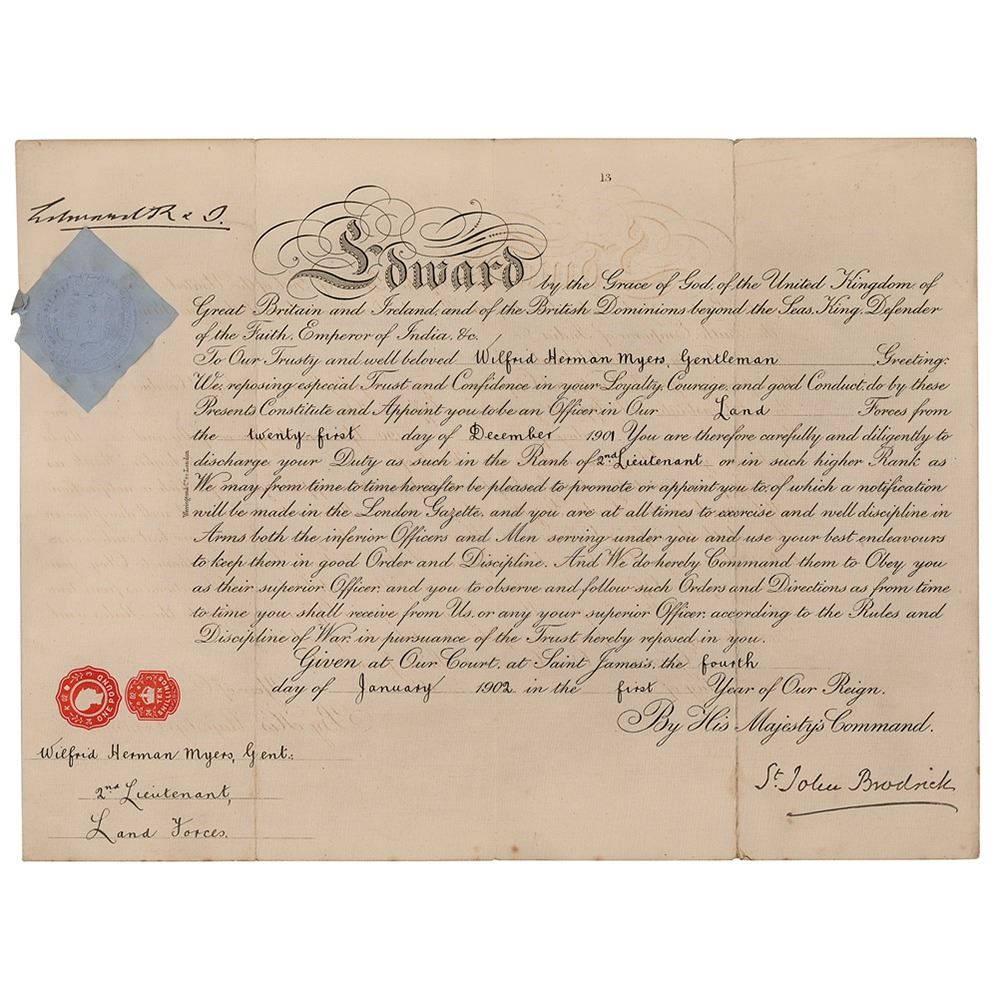 13
Edward R & I.
Edward by the Grace of God, of the United Kingdom of
Great Britain and Ireland, and of the British Dominions beyond the Seas, King, Defender
of the Faith, Emperor of India, &c.
To Our Trusty and well beloved Wilfrid Herman Myers, Gentleman Greeting:
We, reposing especial Trust and Confidence in your Loyalty, Courage, and good Conduct, do by these
Presents Constitute and Appoint you to be an Officer in Our Land Forces from
the twenty-first day of December 1901 You are therefore carefully and diligently to
discharge your Duty as such in the Rank of 2nd Lieutenant or in such higher Rank as
We may from time to time hereafter be pleased to promote or appoint you to, of which a notification
will be made in the London Gazette, and you are at all times to exercise and well discipline in
Arms both the inferior Officers and Men serving under you and use your best endeavours
to keep them in good Order and Discipline. And We do hereby Command them to Obey you
as their superior Officer, and you to observe and follow such Orders and Directions as from time
to time you shall receive from Us, or any your superior Officer, according to the Rules and
Discipline of War, in pursuance of the Trust hereby reposed in you.
Given at Our Court, at Saint James's, the fourth
day of January 1902 in the first Year of Our Reign.
By His Majesty's Command.
ONE POUND
TEN SHILLINGS
Wilfrid Herman Myers, Gent:
2nd Lieutenant,
Land Forces.
St. John Brodrick